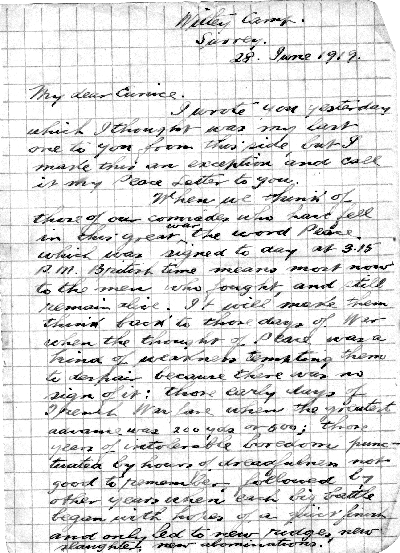 Witley Camp.
Surrey.
28 June 1919.
My dear Eunice.
I wrote you yesterday
which I thought was my last
one to you from this side but I
make this an exception and call
it my Peace Letter to you.
When we think of
those of our comrades who have fell
in this great war the word Peace
which was signed to day at 3.15
P.M. British time means most now
to the men who fought and still
remain alive. It will make them
think back to those days of War
when the thought of Peace was a
kind of weakness tempting them
to despair because there was no
sign of it: those early days of
Trench Warfare when the greatest
advance was 200 yds or 500; those
years of intolerable boredom punc-
tuated by hours of dreadfulness not
good to remember, followed by
other years when each big battle
began with hopes of a quick finish
and only led to new ridges, new
slaughter, new abominations.